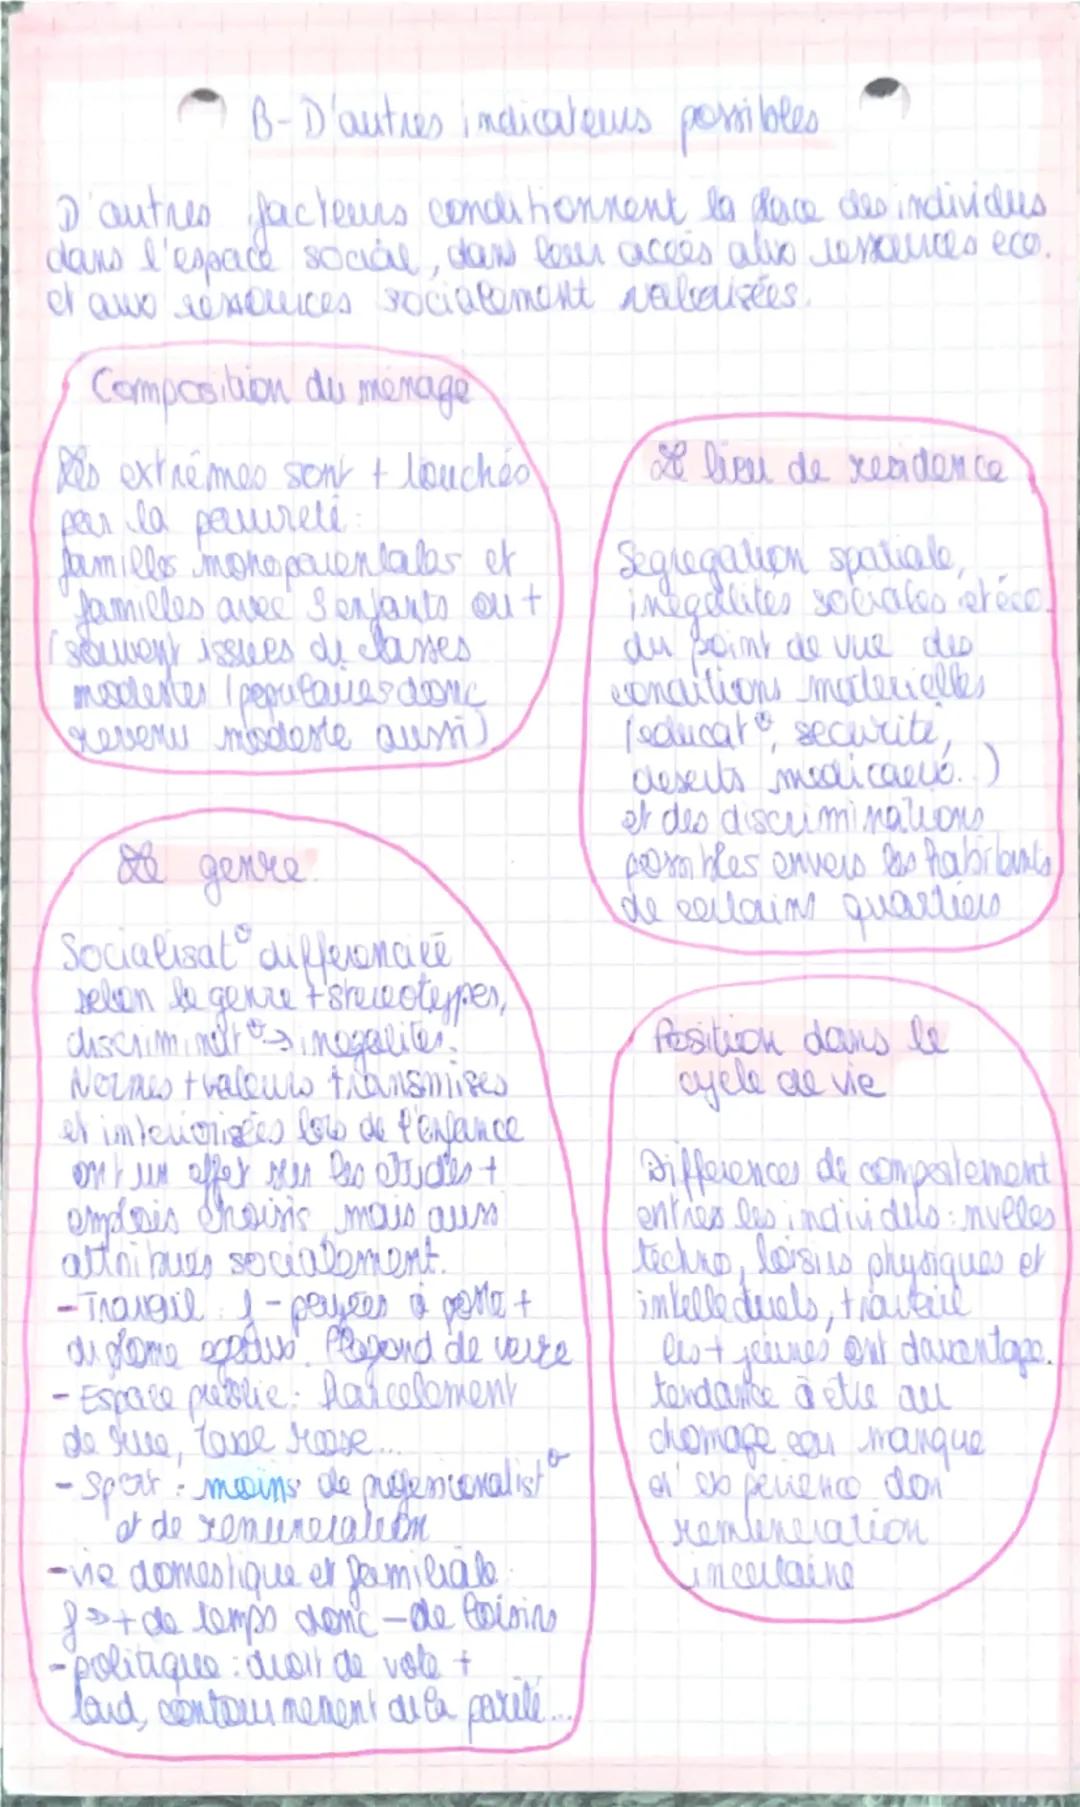 B-D'autres indicateurs possibles
D'autres facteurs conditionnent la place des individus
dans l'espace social, dans leur accès aux ressources eco.
et aux ressources socialement valorisées.
Composition du ménage
Les extrêmes sont + touchés
par la pauvreté :
familles monoparentales et
familles avec 3 enfants ou +
(souvent issues de classes
modestes / populaires donc
revenu modeste aussi)
Le lieu de residence
Segregation spatiale,
inegalites sociales et éco.
du point de vue des
conditions materielles
(educat°, securite,
deserts medicaux..)
et des discriminations
possibles envers les habitants
de certains quartiers
Le genre
Socialisat° differenciée
selon le genre + stereotypes,
discriminat° → inegalites.
Normes + valeurs transmises
et interiorisées lors de l'enfance
ont un effet sur les etudes +
emplois choisis mais aussi
attribues socialement.
- Travail : f - payées à poste +
diplome egaux. Plafond de verre
- Espace public : harcelement
de rue, taxe rose...
- Sport : moins de professionalist°
et de remuneration
- vie domestique et familiale :
f → + de temps donc - de loisirs
- politique : droit de vote +
tard, contournement de la parité...
Position dans le
cycle de vie
Differences de comportement
entres les individus : nvelles
techno, loisirs physiques et
intellectuels, travail
les + jeunes ont davantage
tendance à etre au
chomage car manque
d'experience don
remuneration
incertaine